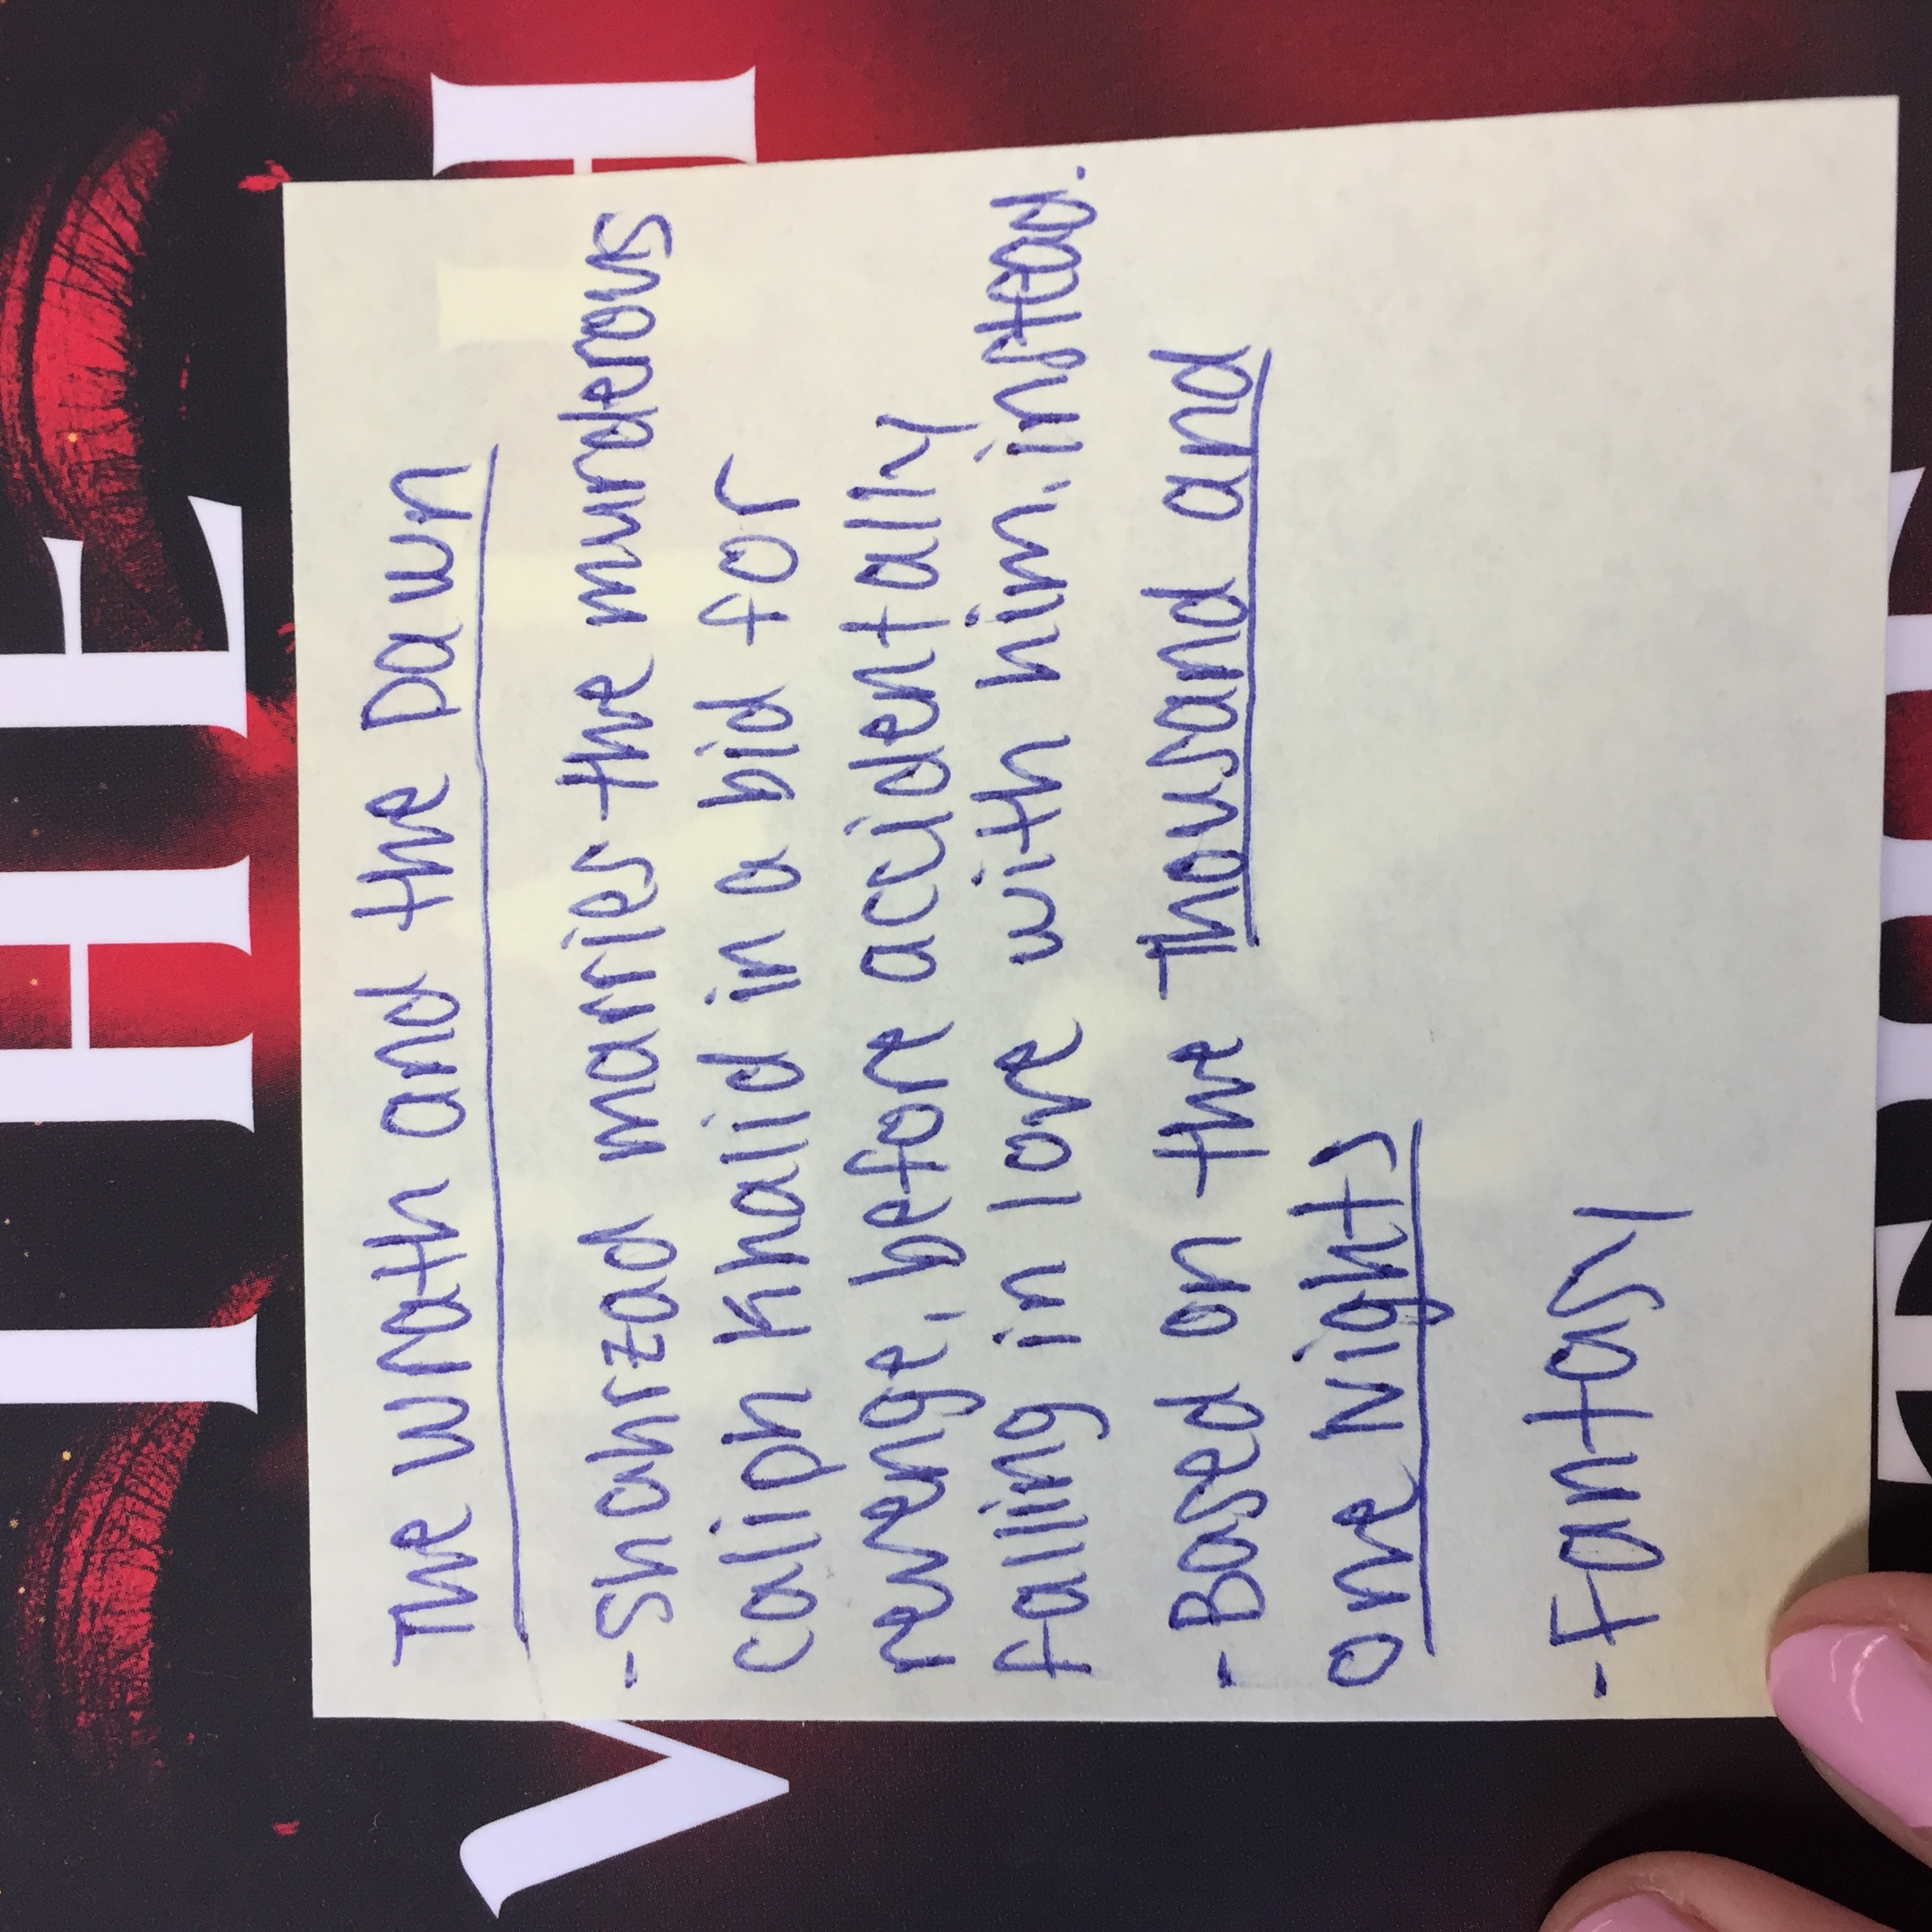 THE
W H
The Wrath and the Dawn
-Shahrzad marries the murderous
caliph Khalid in a bid for
revenge, before accidentally
falling in love with him. instead.
-Based on the Thousand and
One Nights
-Fantasy